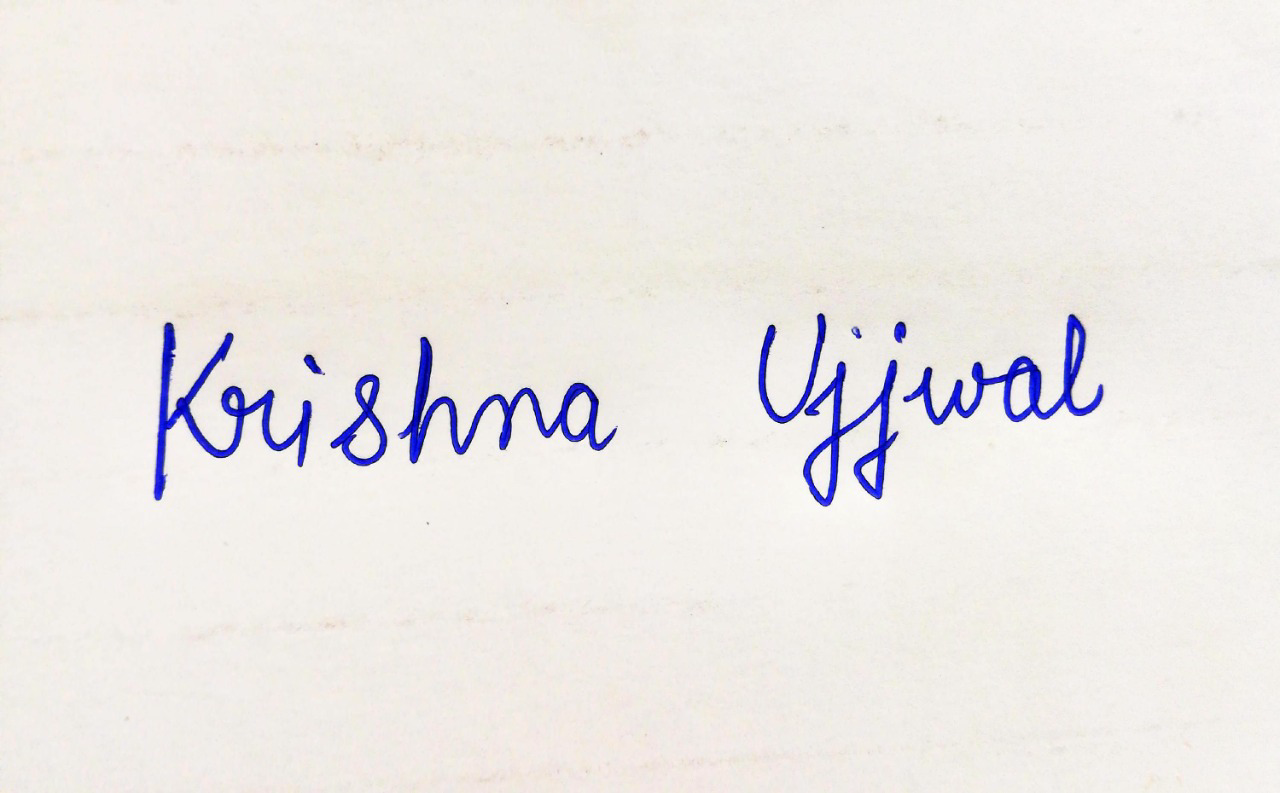 Krishna Ujjwal